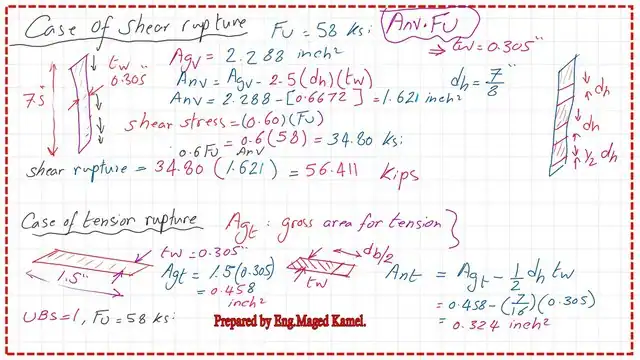 Case of shear rupture FU = 58 ksi Anv·FU
⇒ tw = 0.305"
tw
0.305"
7.5"
Agv = 2.288 inch²
Anv = Agv - 2.5 (dh)(tw)
dh = 7/8"
Anv = 2.288 - [0.6672] = 1.621 inch²
shear stress = (0.60)(FU)
= 0.6 (58) = 34.80 ksi
0.6 FU Anv
shear rupture = 34.80 (1.621) = 56.411 Kips
dh
dh
1/2 dh
Case of tension rupture Agt: gross area for tension
tw = 0.305"
1.5"
Agt = 1.5 (0.305)
= 0.458
inch²
db/2
tw
Ant = Agt - 1/2 dh tw
= 0.458 - (7/16)(0.305)
= 0.324 inch²
UBS = 1, FU = 58 ksi
Prepared by Eng.Maged Kamel.